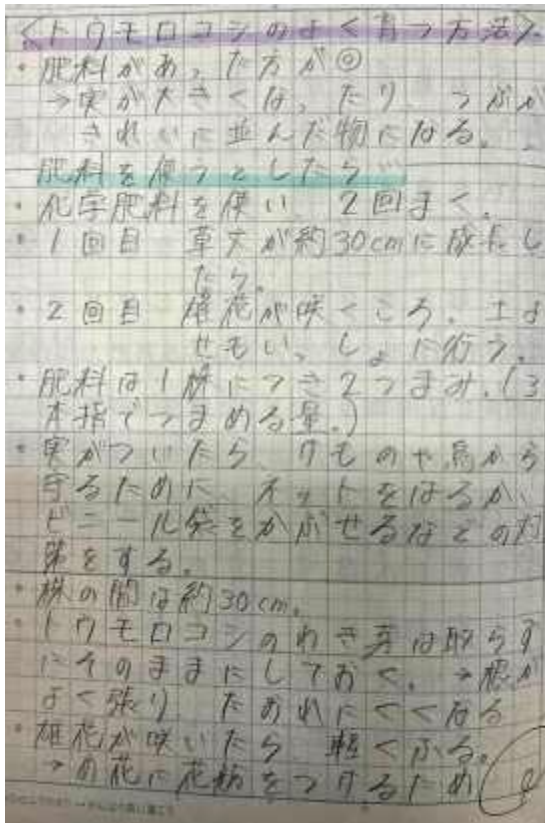 〈トウモロコシのよく育つ方法〉
・肥料があった方が◎
→実が大きくなったり、つぶが
きれいに並んだ物になる。
肥料を使うとしたら…
・化学肥料を使い、2回まく。
・1回目 草丈が約30cmに成長し
たら。
・2回目 雄花が咲くころ。土よ
せもいっしょに行う。
・肥料は1株につき2つまみ。(3
本指でつまめる量。)
・実がついたら、けものや鳥から
守るために、ネットをはるか、
ビニール袋をかぶせるなどの対
策をする。
・株の間は約30cm。
・トウモロコシのわき芽は取らず
にそのままにしておく。→根が
よく張り、たおれにくくなる
・雄花が咲いたら、軽くふる。
→の花に花粉をつけるため